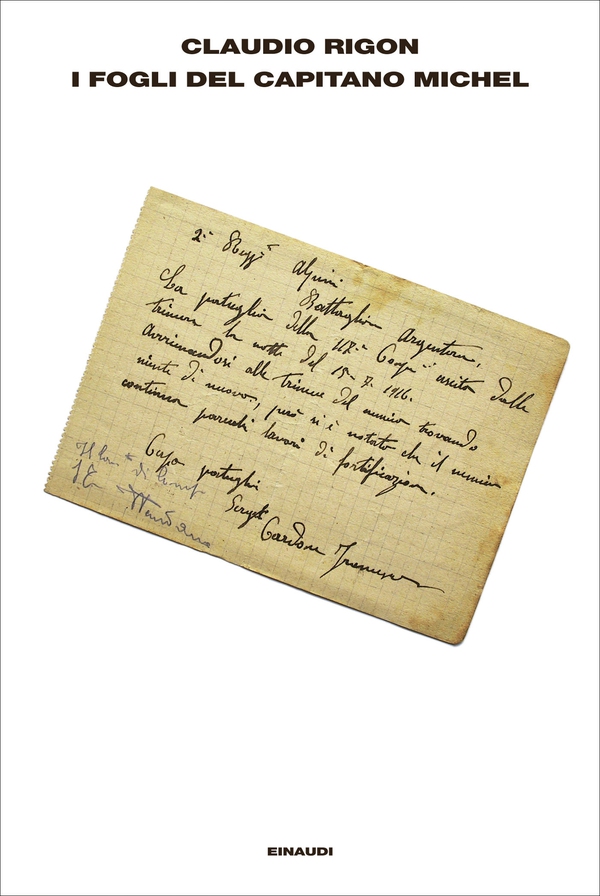 CLAUDIO RIGON
I FOGLI DEL CAPITANO MICHEL
2º Regg.to Alpini
Battaglion Argentera.
La pattuglia della 117ª Comp. uscita dalle
trincea la notte del 15-7-1916.
avvicinandosi alle trincee del nemico trovando
niente di nuovo, però si è notato che il nemico
continua parechi lavori di fortificazion.
Capo pattuglia
Sergte
Cardone
EINAUDI